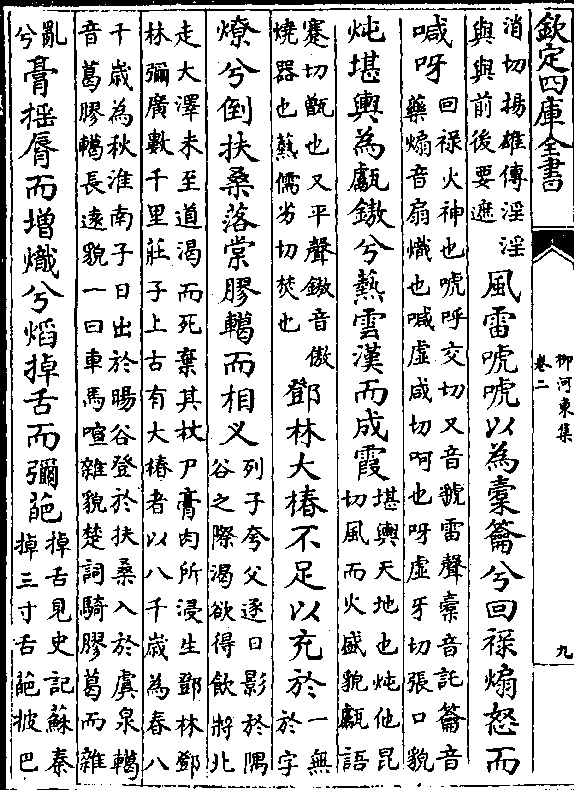 欽定四庫全書
柳河東集
卷二
九
消切揚雄傳淫淫
與與前後要遮
風雷唬唬以為槖籥兮回祿煽怒而
喊呀
回祿火神也唬呼交切又音虢雷聲槖音託籥音
藥煽音扇熾也喊虛咸切呵也呀虛牙切張口貌
炖堪輿為甗鏊兮爇雲漢而成霞
堪輿天地也炖他昆
切風而火盛貌甗語
蹇切甑也又平聲鏊音傲
燒器也爇儒劣切焚也
鄧林大椿不足以充於
一無
於字
燎兮倒扶桑落棠膠轕而相乂
列子夸父逐日影於隅
谷之際渴欲得飲將北
走大澤未至道渴而死棄其杖尸膏肉所浸生鄧林鄧
林彌廣數千里莊子上古有大椿者以八千歲為春八
千歲為秋淮南子日出於暘谷登於扶桑入於虞泉轕
音葛膠轕長遠貌一曰車馬喧雜貌楚詞騎膠葛而雜
亂
兮
膏搖脣而增熾兮熖掉舌而彌葩
掉舌見史記蘇秦
掉三寸舌葩披巴